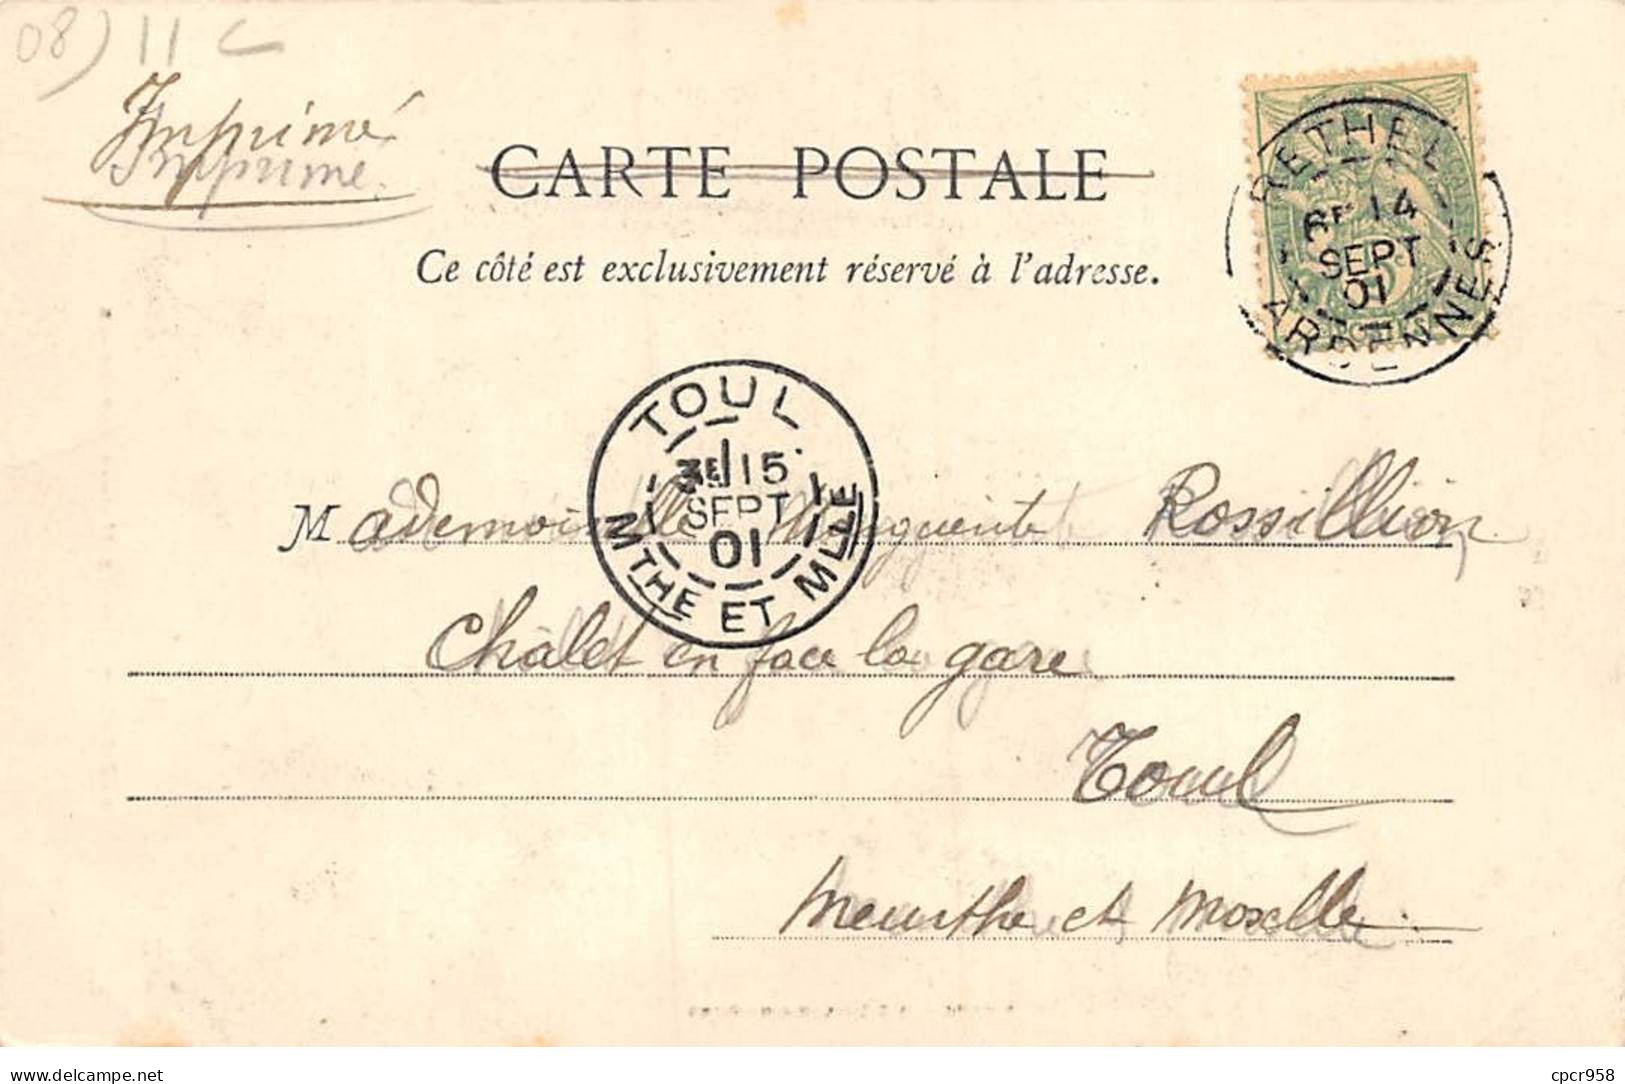 08) 11 C
Imprimé
Imprimé
CARTE POSTALE
Ce côté est exclusivement réservé à l'adresse.
RETHEL
6E 14
SEPT
01
ARDENNES
TOUL
15
SEPT
01
MTHE ET MLLE
Mademoiselle Marguerite Rossillion
Châlet en face la gare
Toul
Meurthe et Moselle
www.delcampe.net
cpcr958